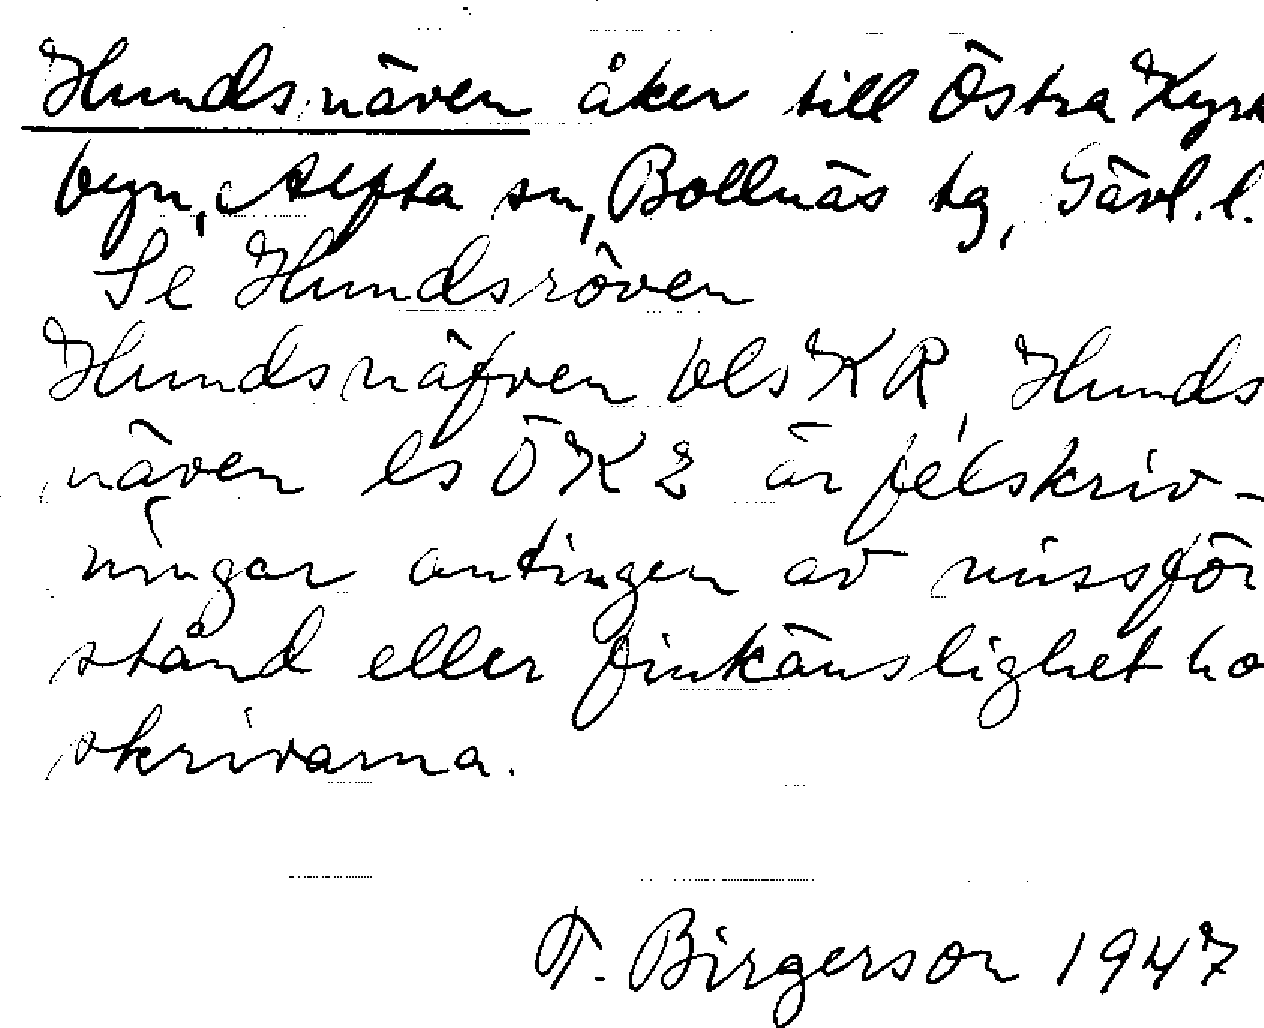 Hundsnäven åker till Östra Kyrk
byn, Alfta sn, Bollnäs tg, Gävl.l.
Se Hundsröven
Hundsnäfven bls KR, Hunds
näven ls ÖK2 är felskriv-
ningar antingen av missför
stånd eller finkänslighet ho
skrivarna.
T. Birgerson 1947